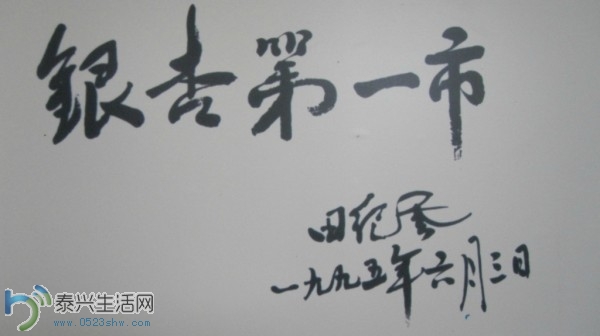 銀杏第一市
田纪云
一九九五年六月三日
泰兴生活网
www.0523shw.com